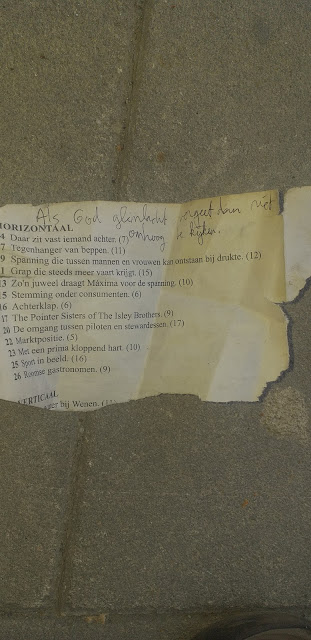 Als God glimlacht vergeet dan niet
omhoog te kijken.
HORIZONTAAL
4 Daar zit vast iemand achter. (7)
7 Tegenhanger van beppen. (11)
9 Spanning die tussen mannen en vrouwen kan ontstaan bij drukte. (12)
1 Grap die steeds meer vaart krijgt. (15)
13 Zo'n juweel draagt Máxima voor de spanning. (10)
15 Stemming onder consumenten. (6)
16 Achterklap. (6)
17 The Pointer Sisters of The Isley Brothers. (9)
20 De omgang tussen piloten en stewardessen. (17)
22 Marktpositie. (5)
23 Met een prima kloppend hart. (10)
25 Sport in beeld. (16)
26 Roomse gastronomen. (9)
VERTICAAL
bij Wenen.